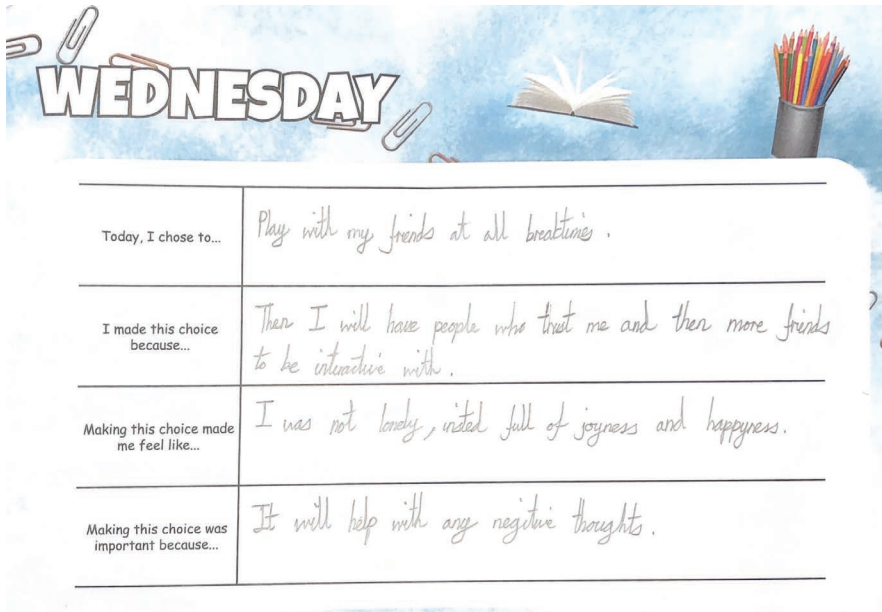 WEDNESDAY
Today, I chose to...
Play with my friends at all breaktimes.
I made this choice
because...
Then I will have people who trust me and then more friends
to be interactive with.
Making this choice made
me feel like...
I was not lonely, insted full of joyness and happyness.
Making this choice was
important because...
It will help with any negitive thoughts.